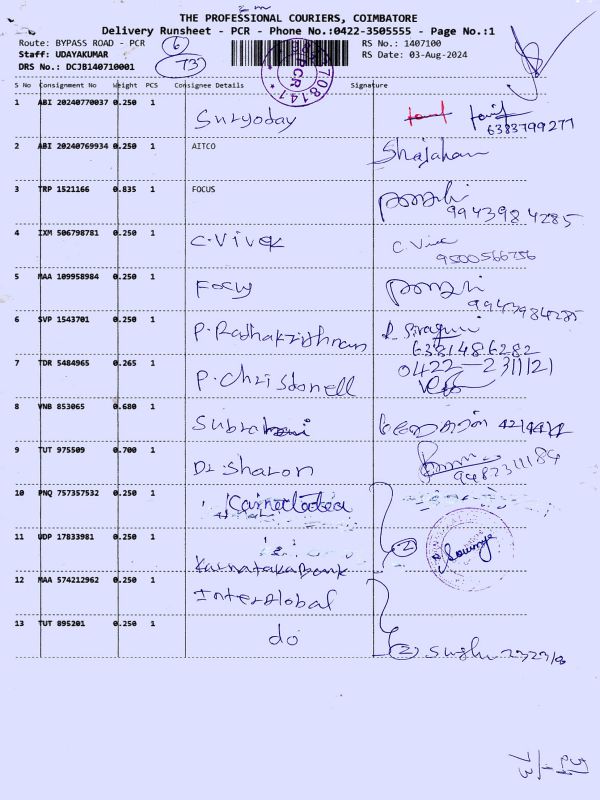 THE PROFESSIONAL COURIERS, COIMBATORE
Delivery Runsheet - PCR - Phone No.:0422-3505555 - Page No.:1
Route: BYPASS ROAD - PCR 6 RS No.: 1407100
Staff: UDAYAKUMAR RS Date: 03-Aug-2024
DRS No.: DCJB140710001 T3
S No Consignment No Weight PCS Consignee Details Signature
1 ABI 20240770037 0.250 1 Suryoday
6383799277
2 ABI 20240769934 0.250 1 AITCO Shajahan
3 TRP 1521166 0.835 1 FOCUS
9943984285
4 IXM 506798781 0.250 1 C.Vivek C.Vivek
9500566756
5 MAA 109958984 0.250 1 Focus
9943984285
6 SVP 1543701 0.250 1 P.Radhakrishnan
6381486282
7 TDR 5484965 0.265 1 P.Christonell 0422-2311121
8 VNB 853065 0.680 1
9 TUT 975509 0.700 1 Dr Sharon
9487311184
10 PNQ 757357532 0.250 1
11 UDP 17833981 0.250 1 Karnataka Bank 2
12 MAA 574212962 0.250 1 Interglobal
13 TUT 895201 0.250 1 do 2